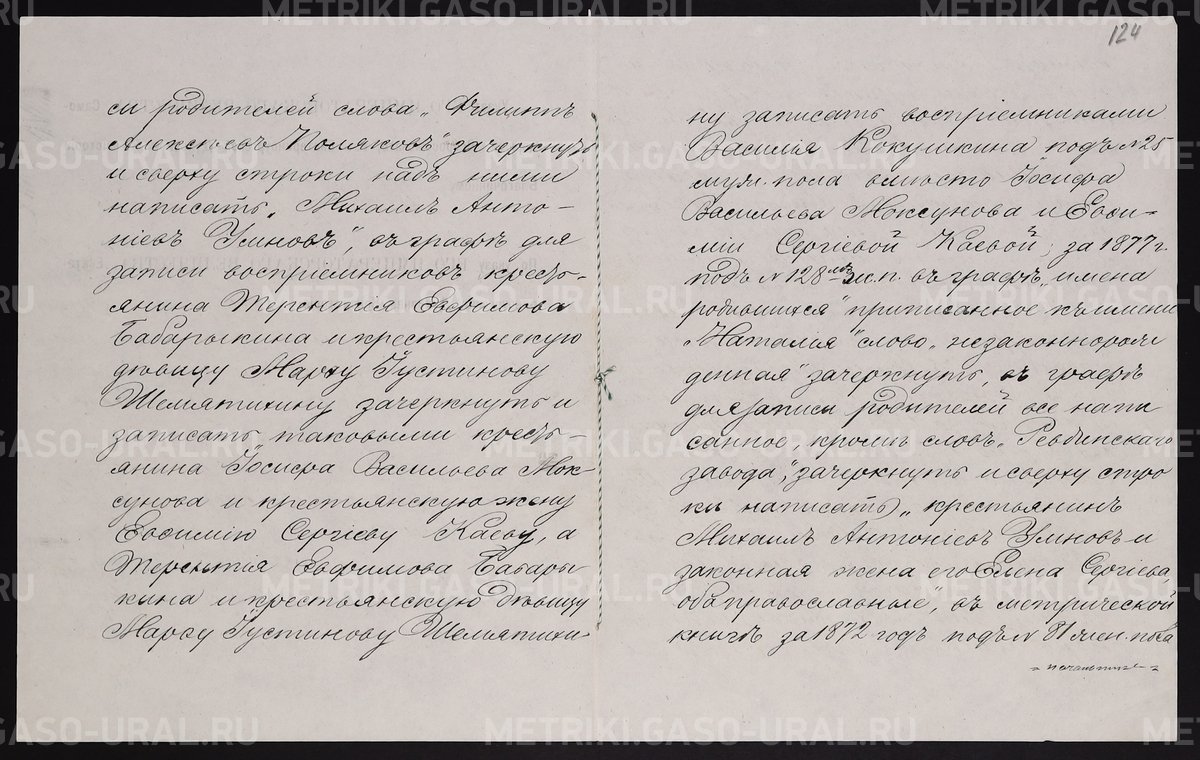 124
си родителей слова „Филиппъ
Алексѣевъ Поляковъ" зачеркнуть
и сверху строки надъ ними
написать „Михаилъ Анто-
ніевъ Умновъ", въ графѣ для
записи воспріемниковъ кресть-
янина Терентія Евфимова
Бабарыкина и крестьянскую
дѣвицу Марѳу Іустинову
Шемятихину зачеркнуть и
записать таковыми кресть-
янина Іосифа Васильева Мок-
сунова и крестьянскую жену
Евѳимію Сергіеву Каеву, а
Терентія Евфимова Бабары-
кина и крестьянскую дѣвицу
Марѳу Іустинову Шемятихи-
ну записать воспріемниками
Василія Кокушкина подъ № 25
муж. пола вмѣсто Іосифа
Васильева Моксунова и Евѳи-
міи Сергіевой Каевой; за 1877 г.
подъ № 128 ж. п. въ графѣ „имена
родившихся" приписанное къ имени
„Наталія" слово „незаконнорож
денная" зачеркнуть, въ графѣ
для записи родителей все напи
санное, кромѣ словъ „Ревдинскаго
завода", зачеркнуть и сверху стро
ки написать „крестьянинъ
Михаилъ Антоніевъ Умновъ и
законная жена его Елена Сергіева,
оба православные, въ метрической
книгѣ за 1872 годъ подъ № 81 жен. пола
METRIKI.GASO-URAL.RU